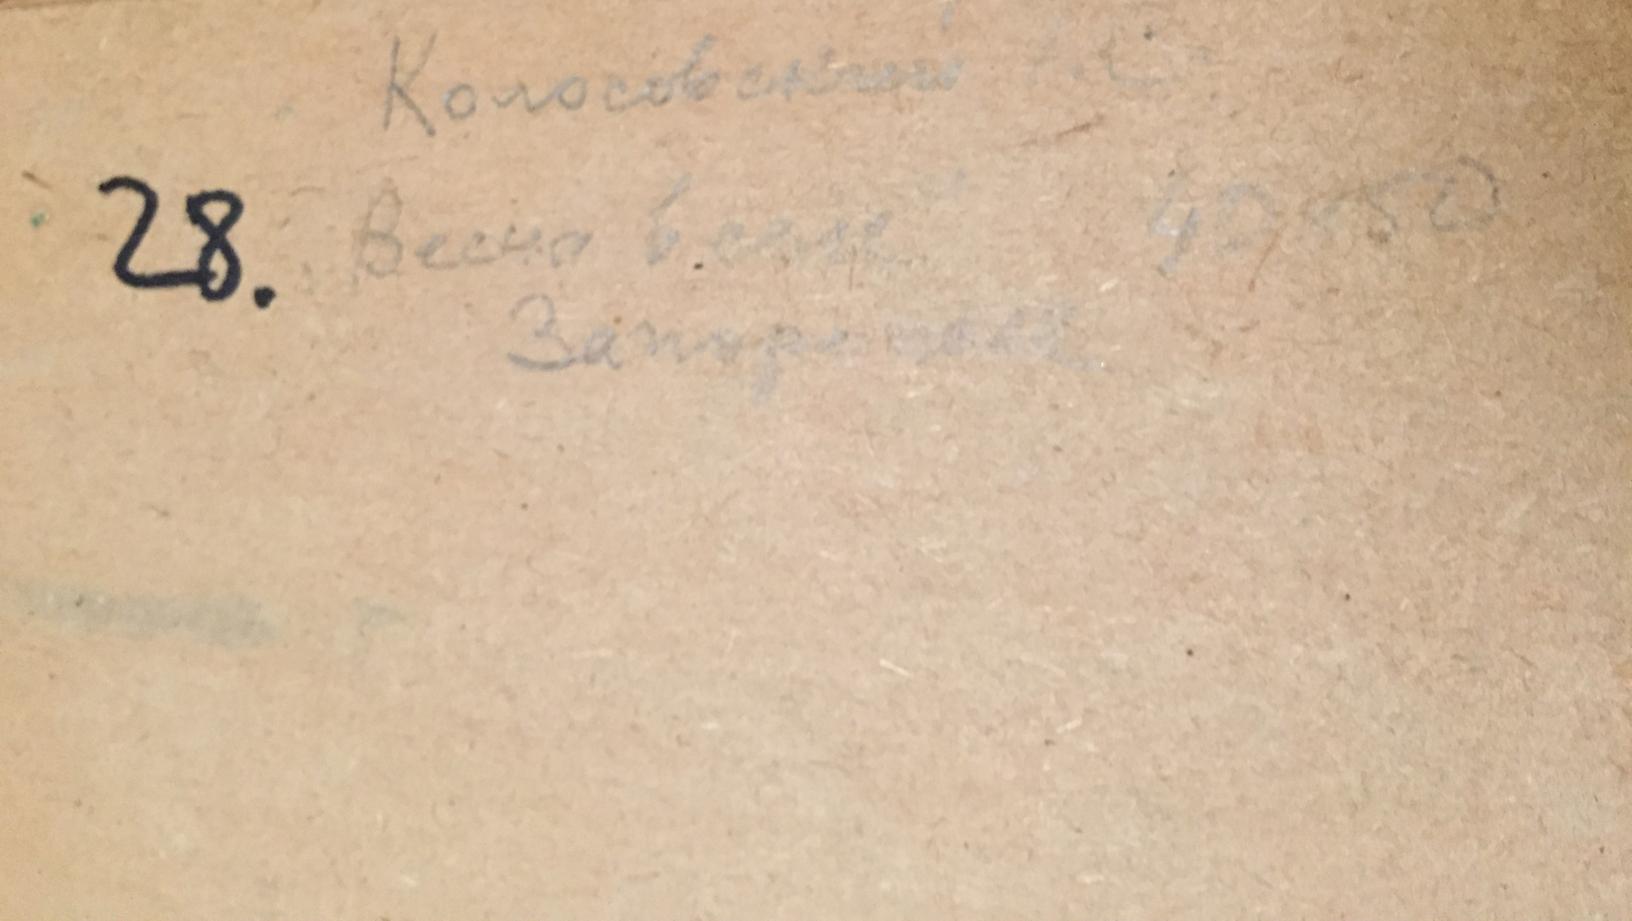 Колосовский Г.С
28. „Весна в селе" 40х50
Запорожье